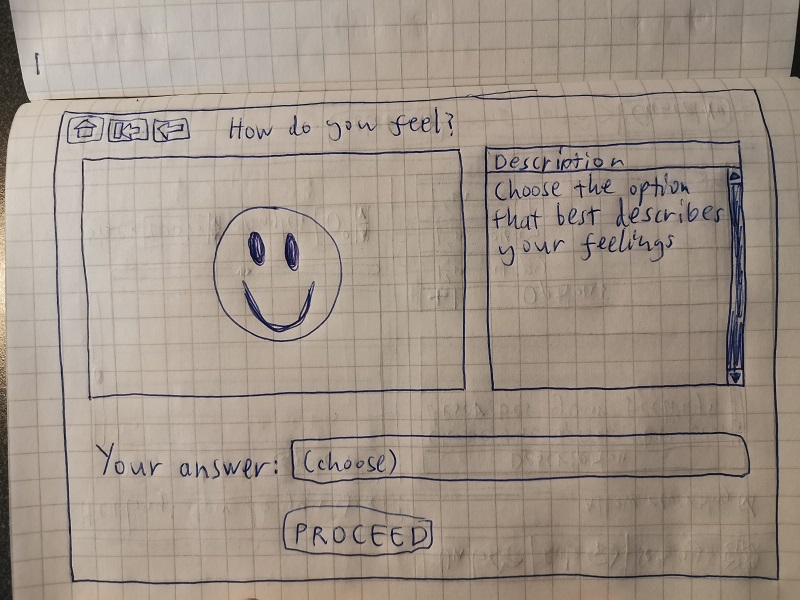 How do you feel?
Description
Choose the option
that best describes
your feelings
Your answer: (choose)
PROCEED